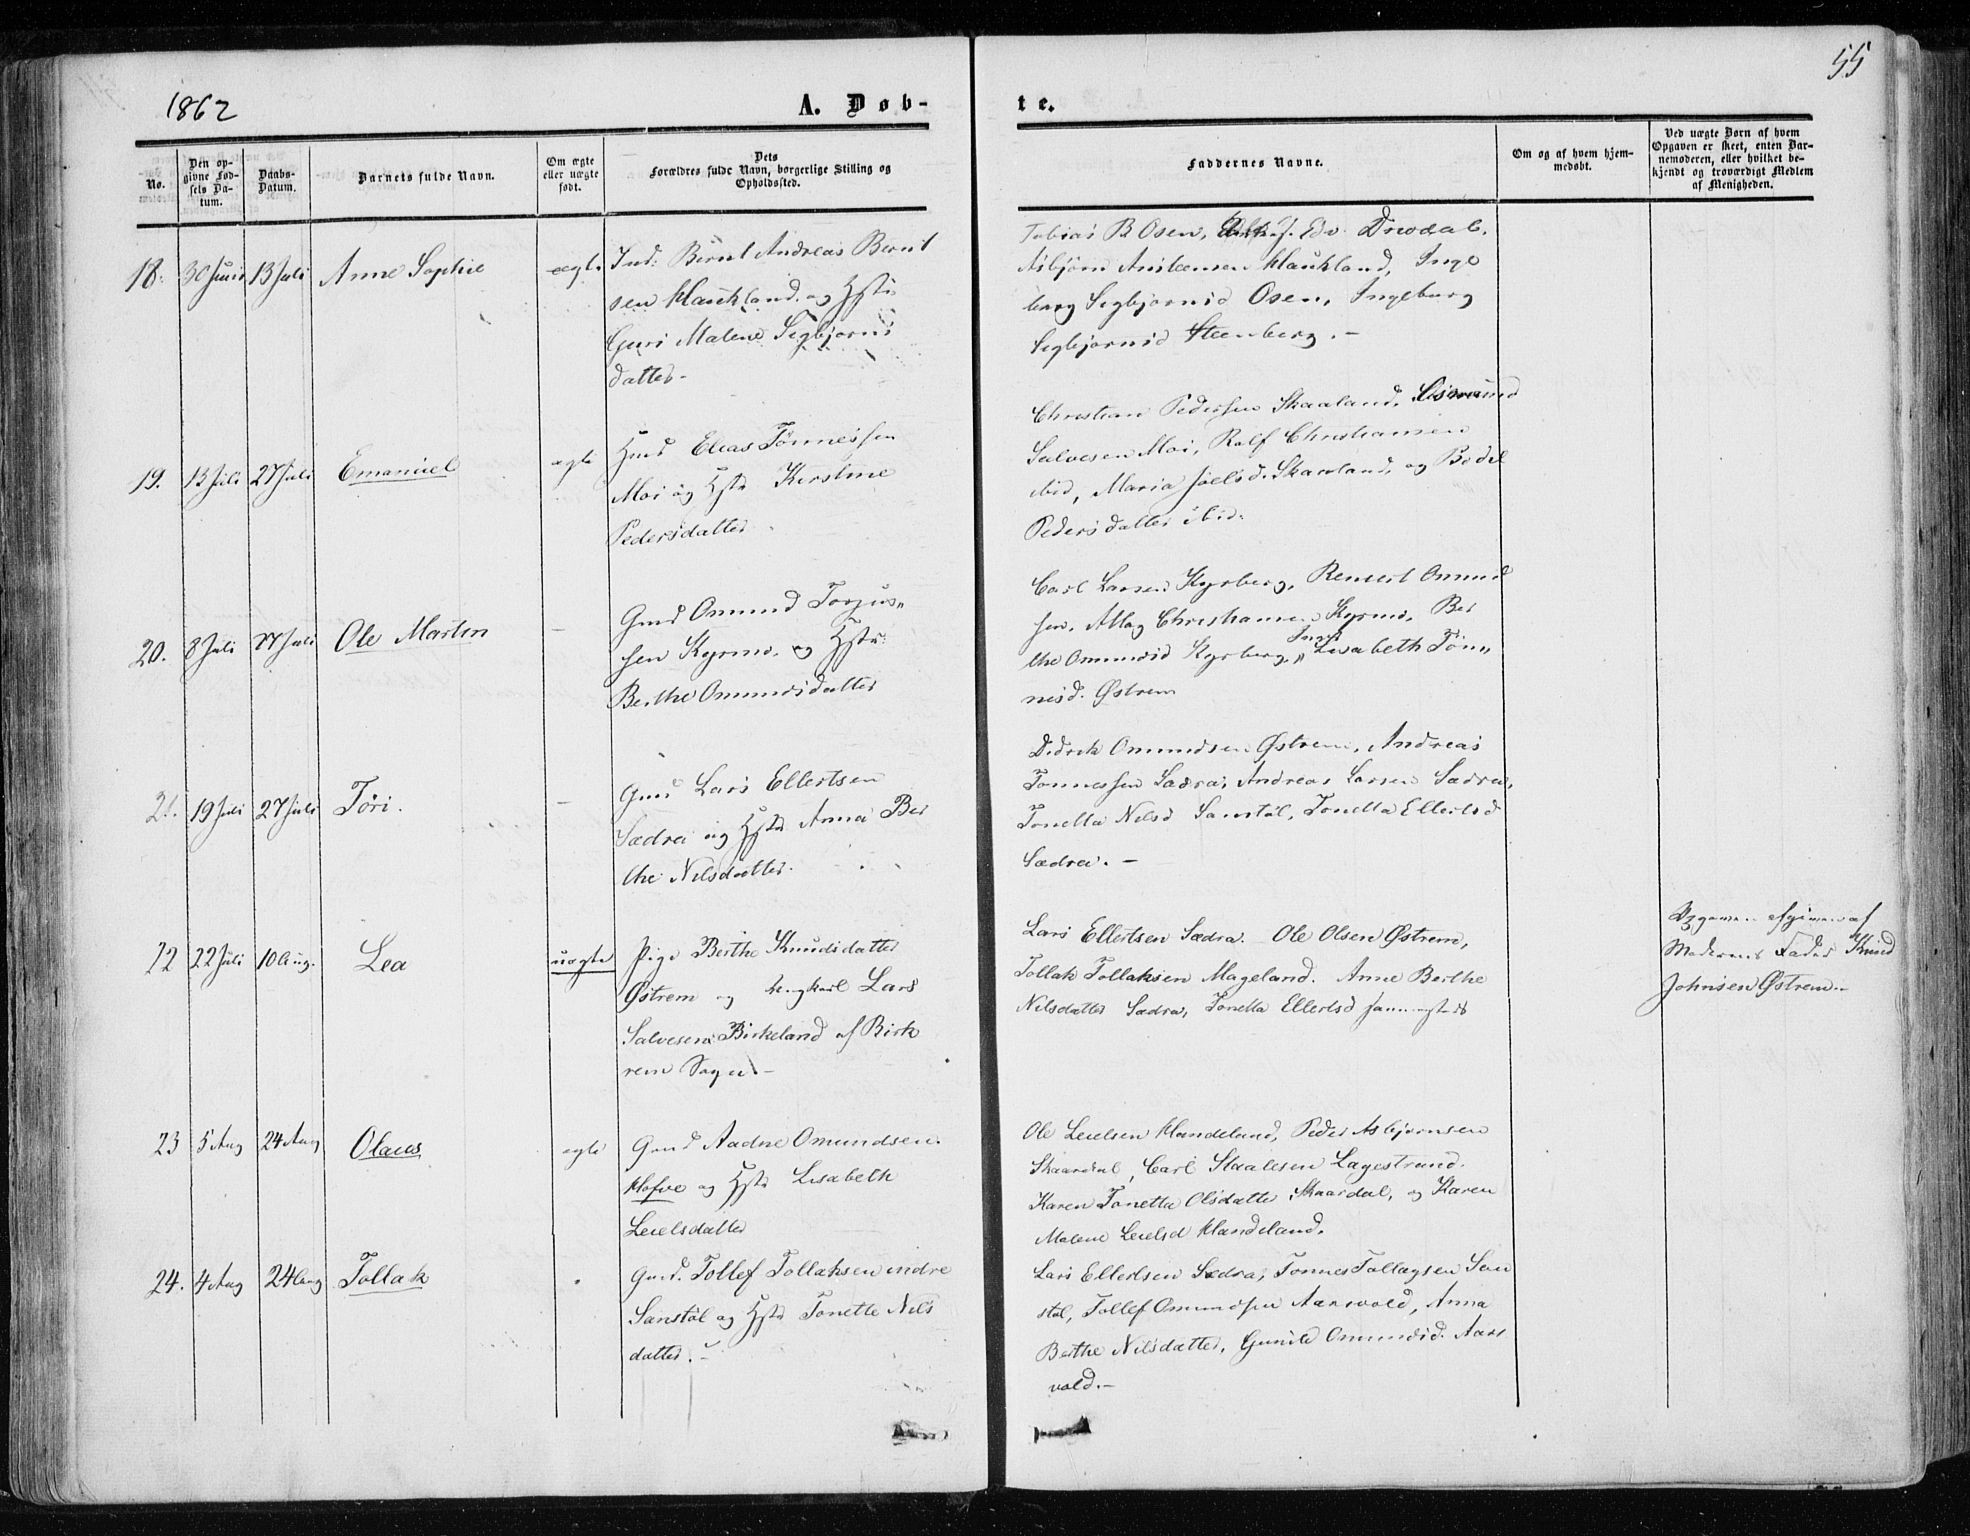 55
1862
A. Døb-
te.
No.
Den op-
givne Fød-
sels Da-
tum.
Daabs-
Datum.
Barnets fulde Navn.
Om ægte
eller uægte
født.
Dets
Forældres fulde Navn, borgerlige Stilling og
Opholdssted.
Faddernes Navne.
Om og af hvem hjem-
medøbt.
Ved uægte Børn af hvem
Opgaven er skeet, enten Bar-
nemoderen, eller hvilket be-
kjendt og troværdigt Medlem
af Menigheden.
18. 30 Juni 13 Juli Anne Sophie ægte
Ind: Bernt Andreas Bernt
sen Haukland og Hstr
Guri Malene Segbjørns
datter -
Tobias B Osen, Edv. Drivdal,
Asbjørn Austensen Haukland, Inge
borg Segbjørnsd Osen, Ingeborg
Segbjørnsd Steenberg. -
19. 13 Juli 27 Juli Emanuel ægte
Hmd Elias Tønnessen
Moi og Hstr Kirstine
Pedersdatter
Christian Pedersen Skaaland, Osmund
Salvesen Moi, Rolf Christiansen
ibid, Maria Joelsd. Skaaland, og Bodil
Pedersdatter ibid.
20. 8 Juli 27 Juli Ole Martin -
Gmd Omund Torjus„
sen Kyrmo, og Hstr
Berthe Omundsdatter
Carl Larsen Kyrberg, Rentert Omund
sen, Atlag Christiansen Kyrmo, Ber
the Omundsd Kyrberg, „ Lisabeth Tøn„
nesd. Østrem
21. 19 Juli 27 Juli Tøri. -
Gmd Lars Ellertsen
Sædra og Hstr Anna Ber
the Nilsdatter.
Didrik Omundsen Østrem, Andreas
Tønnessen Sædra, Andreas Larsen Sædra,
Tonetta Nilsd Sanstøl, Tonetta Ellertsd
Sædra. -
22 22 Juli 10 Aug. Lea uægte
Pige Berthe Knudsdatter
Østrem og Ungkarl Lars
Salvesen Birkeland af Birk
rem Sogn -
Lars Ellertsen Sædra. Ole Olsen Østrem,
Tollak Tollaksen Mageland. Anne Berthe
Nilsdatter Sædra, Tonetta Ellertsd sammesteds
Opgaven afgiven af
Moderens Fader Knud
Johnsen Østrem -
23 5 Aug 24 Aug Olaus ægte
Gmd Aadne Omundsen
Hofve og Hstr Lisabeth
Leielsdatter
Ole Leielsen Handeland, Peder Asbjørnsen
Skaardal, Carl Staalesen Lagestrand.
Karen Tonetta Olsdatter Skaardal, og Karen
Malene Leielsd Handeland.
24. 4 Aug 24 Aug Tollak
Gmd. Tollef Tollaksen indre
Sanstøl og Hstr Tonette Nils
datter. -
Lars Ellertsen Sædra, Tønnes Tollagsen San
støl, Tollef Omundsen Aarsvold, Anna
Berthe Nilsdatter, Gunild Omundsd. Aars
vold. -